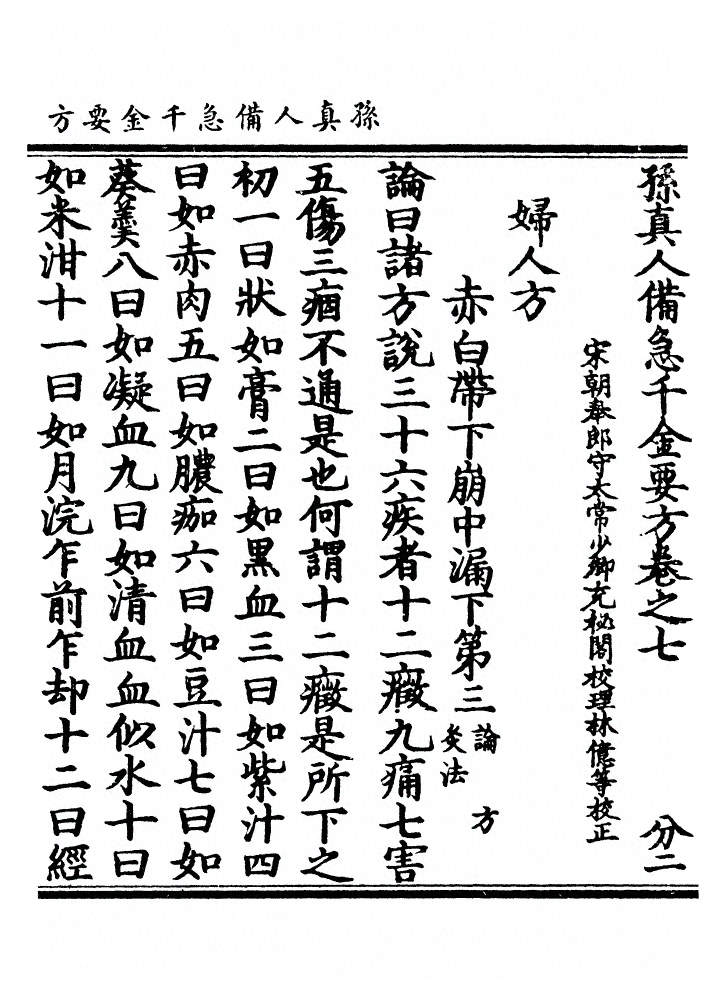 孫真人備急千金要方
孫真人備急千金要方卷之七 分二
宋朝奉郎守太常少卿充秘閣校理林億等校正
婦人方
赤白帶下崩中漏下第三 論 方 灸法
論曰諸方說三十六疾者十二癥九痛七害
五傷三痼不通是也何謂十二癥是所下之
初一曰狀如膏二曰如黑血三曰如紫汁四
曰如赤肉五曰如膿痂六曰如豆汁七曰如
葵羹八曰如凝血九曰如清血血似水十曰
如米泔十一曰如月浣乍前乍却十二曰經